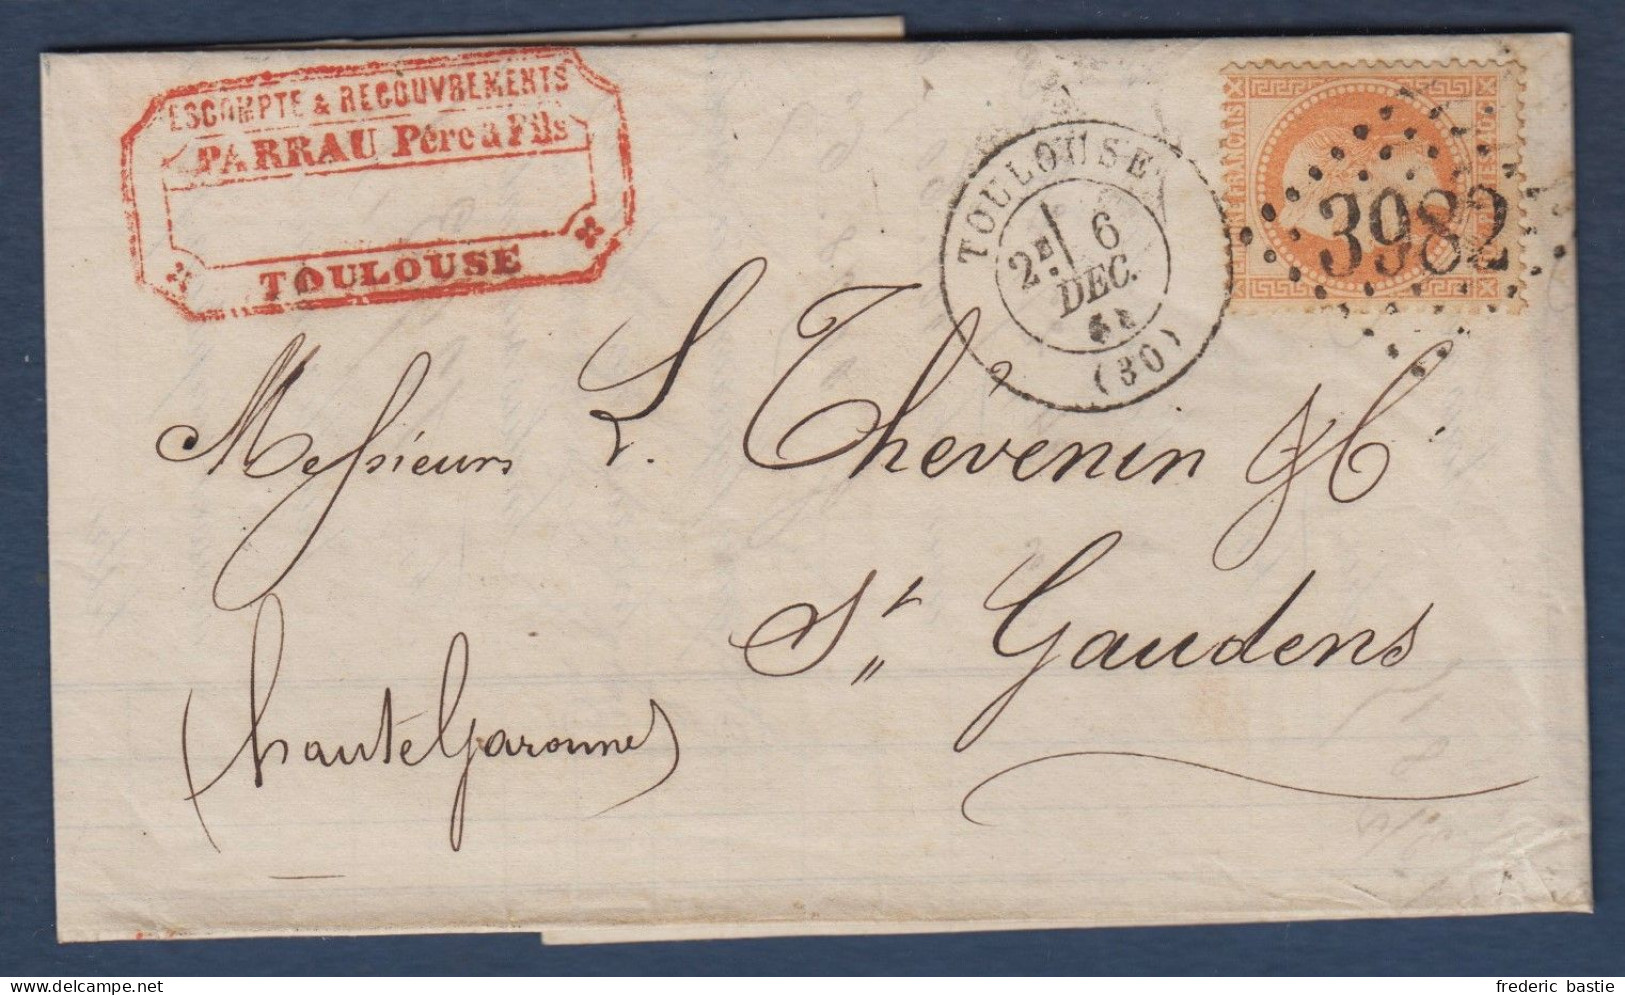 ESCOMPTE & RECOUVREMENTS
PARRAU Père & Fils
TOULOUSE
TOULOUSE
2E 6
DEC.
68
(30)
EMPIRE FRANÇAIS
3982
Messieurs L. Thevenin & C.
St Gaudens
(haute Garonne)
frederic bastie